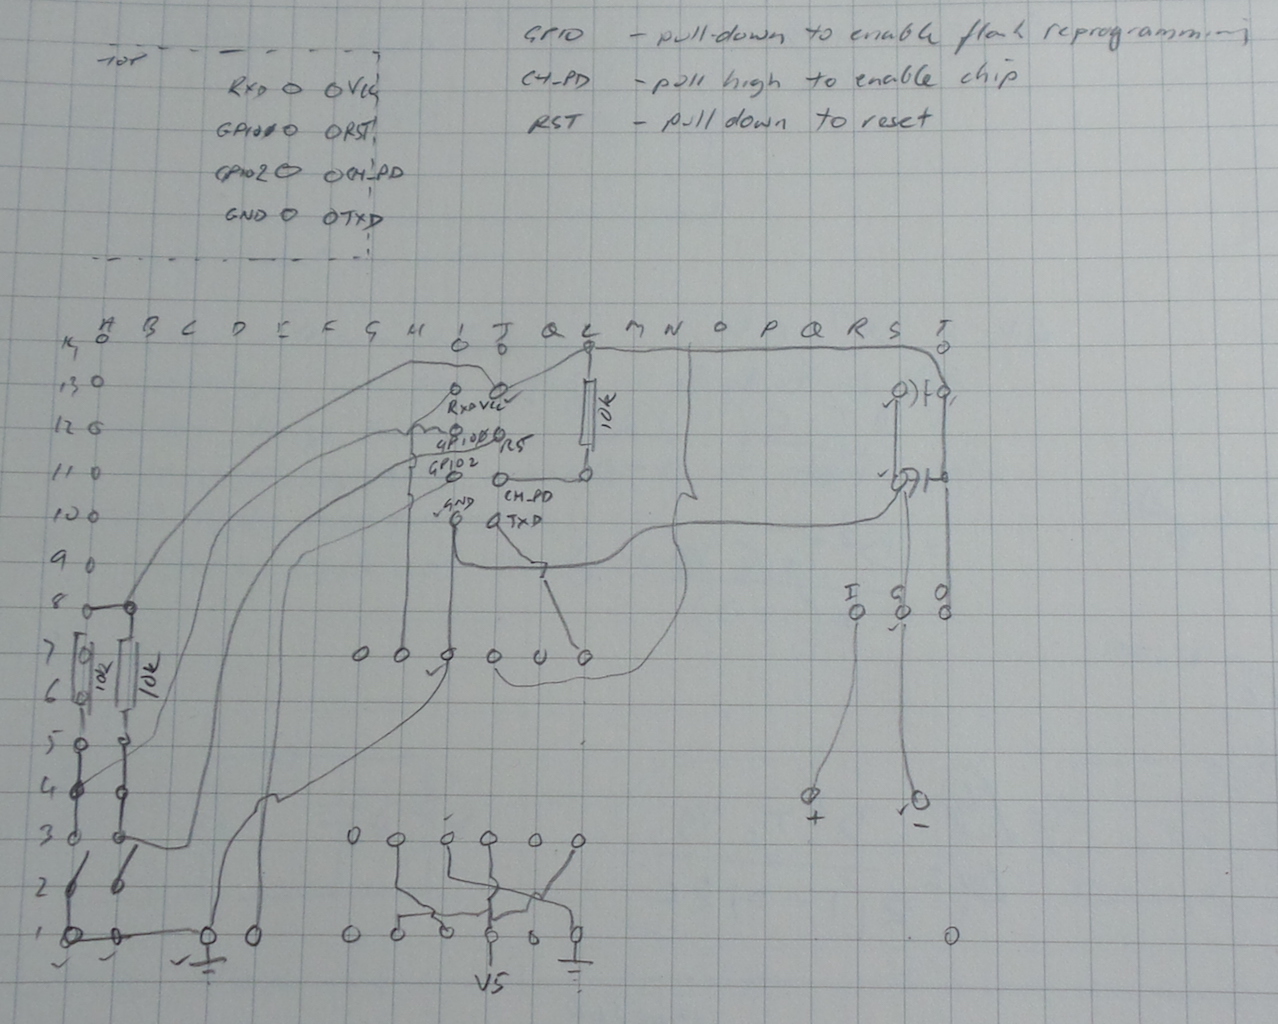 GPIO - pull-down to enable flash reprogramming
CH_PD - pull high to enable chip
RST - pull down to reset
TOP
RXD VCC
GPIO0 RST
GPIO2 CH_PD
GND TXD
A B C D E F G H I J Q L M N O P Q R S T
13
12
11
10
9
8
7
6
5
4
3
2
1
RXD VCC
GPIO0 RS
GPIO2
CH_PD
GND TXD
10K
10K
10K
I G O
+ -
V5